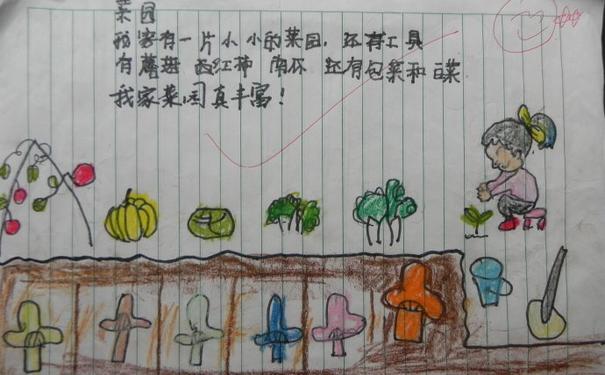 菜园
我家有一片小小的菜园,还有工具
有蘑菇 西红柿 南瓜 还有包菜和白菜
我家菜园真丰富!